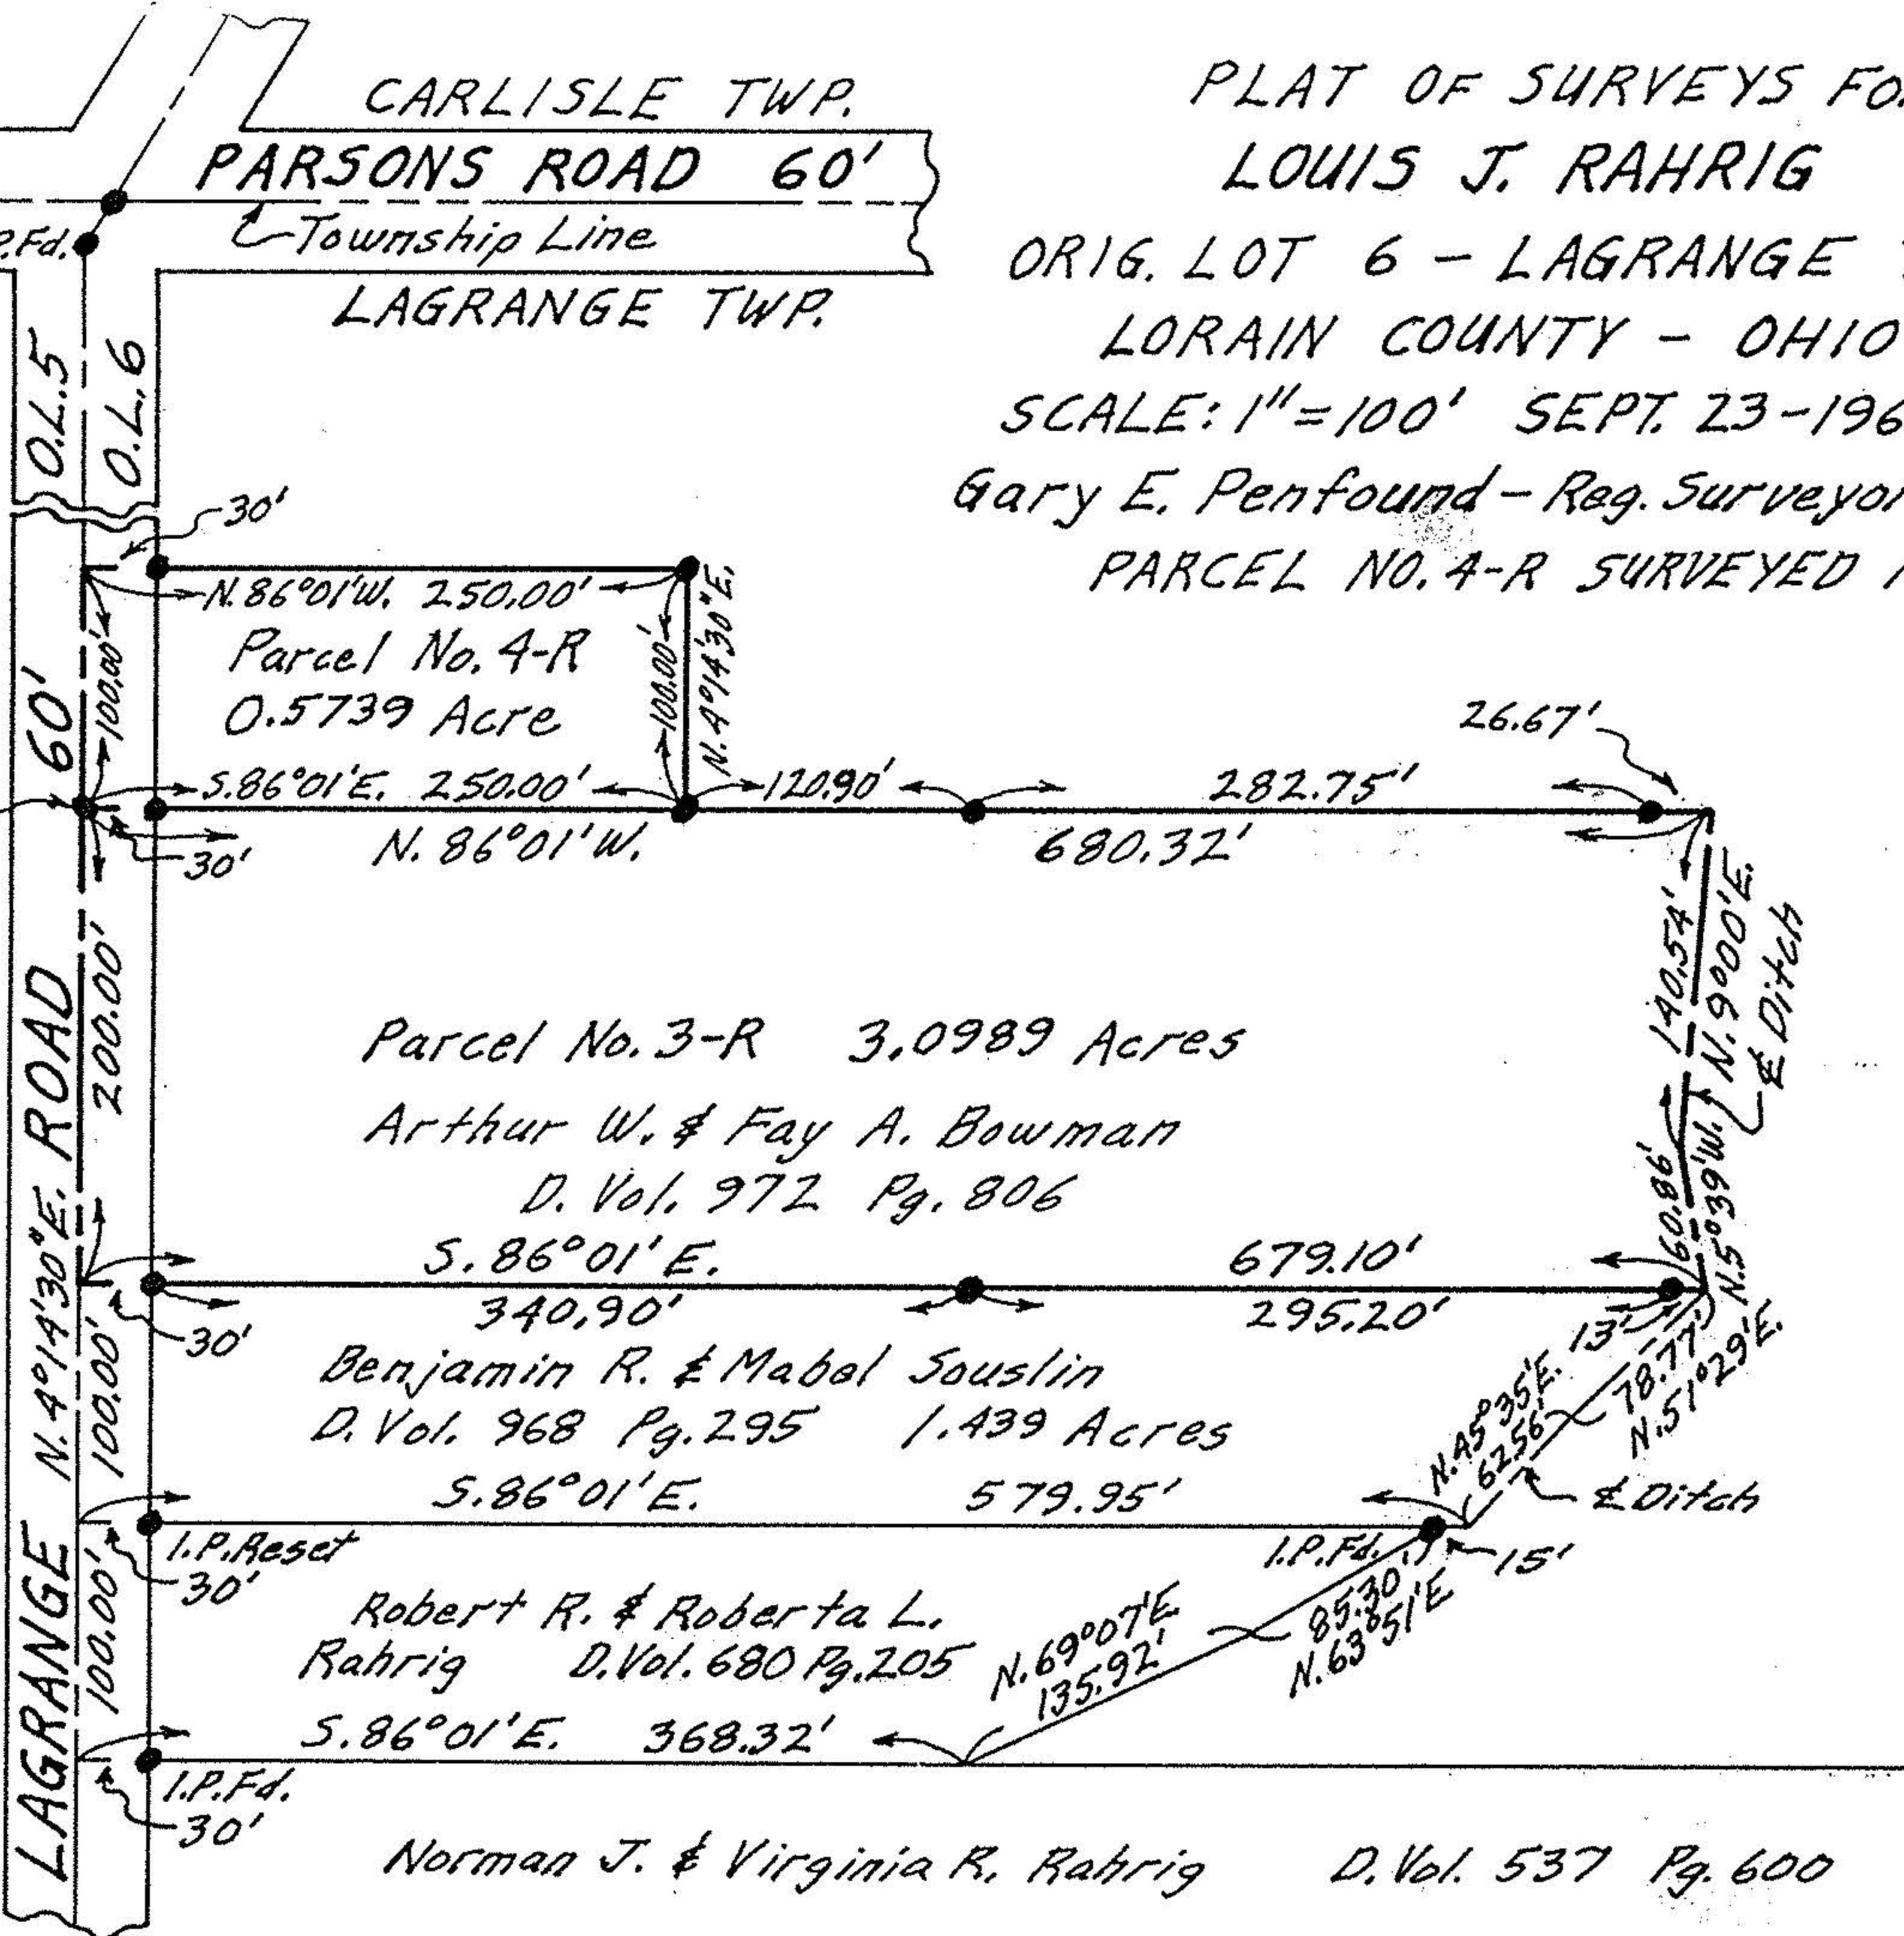 CARLISLE TWP.
PARSONS ROAD 60'
Township Line
LAGRANGE TWP.
PLAT OF SURVEYS
LOUIS J. RAHRIG
ORIG. LOT 6 - LAGRANGE
LORAIN COUNTY - OHIO
SCALE: 1"=100' SEPT. 23-196
Gary E. Penfound - Reg. Surveyor
PARCEL NO. 4-R SURVEYED
P.Fd.
O.L.5
O.L.6
30'
N.86°01'W. 250.00'
Parcel No. 4-R
0.5739 Acre
100.00'
100.00'
N.4°14'30"E.
S.86°01'E. 250.00'
120.90'
282.75'
26.67'
30'
N. 86°01'W.
680.32'
LAGRANGE N.4°14'30"E. ROAD 60'
200.00'
140.54'
N.9°00'E.
₵ Ditch
Parcel No. 3-R 3.0989 Acres
Arthur W. & Fay A. Bowman
D. Vol. 972 Pg. 806
60.86'
N.5°39'W.
S. 86°01'E.
679.10'
340.90'
295.20'
13'
30'
100.00'
Benjamin R. & Mabel Souslin
D. Vol. 968 Pg. 295 1.439 Acres
N.45°35'E.
62.56'
78.77'
N.51°29'E.
₵ Ditch
S.86°01'E. 579.95'
I.P. Reset
30'
I.P.Fd.
15'
100.00'
Robert R. & Roberta L.
Rahrig D.Vol. 680 Pg. 205
N.69°07'E.
135.92'
85.30'
N.63°51'E
S.86°01'E. 368.32'
I.P.Fd.
30'
Norman J. & Virginia R. Rahrig D.Vol. 537 Pg. 600